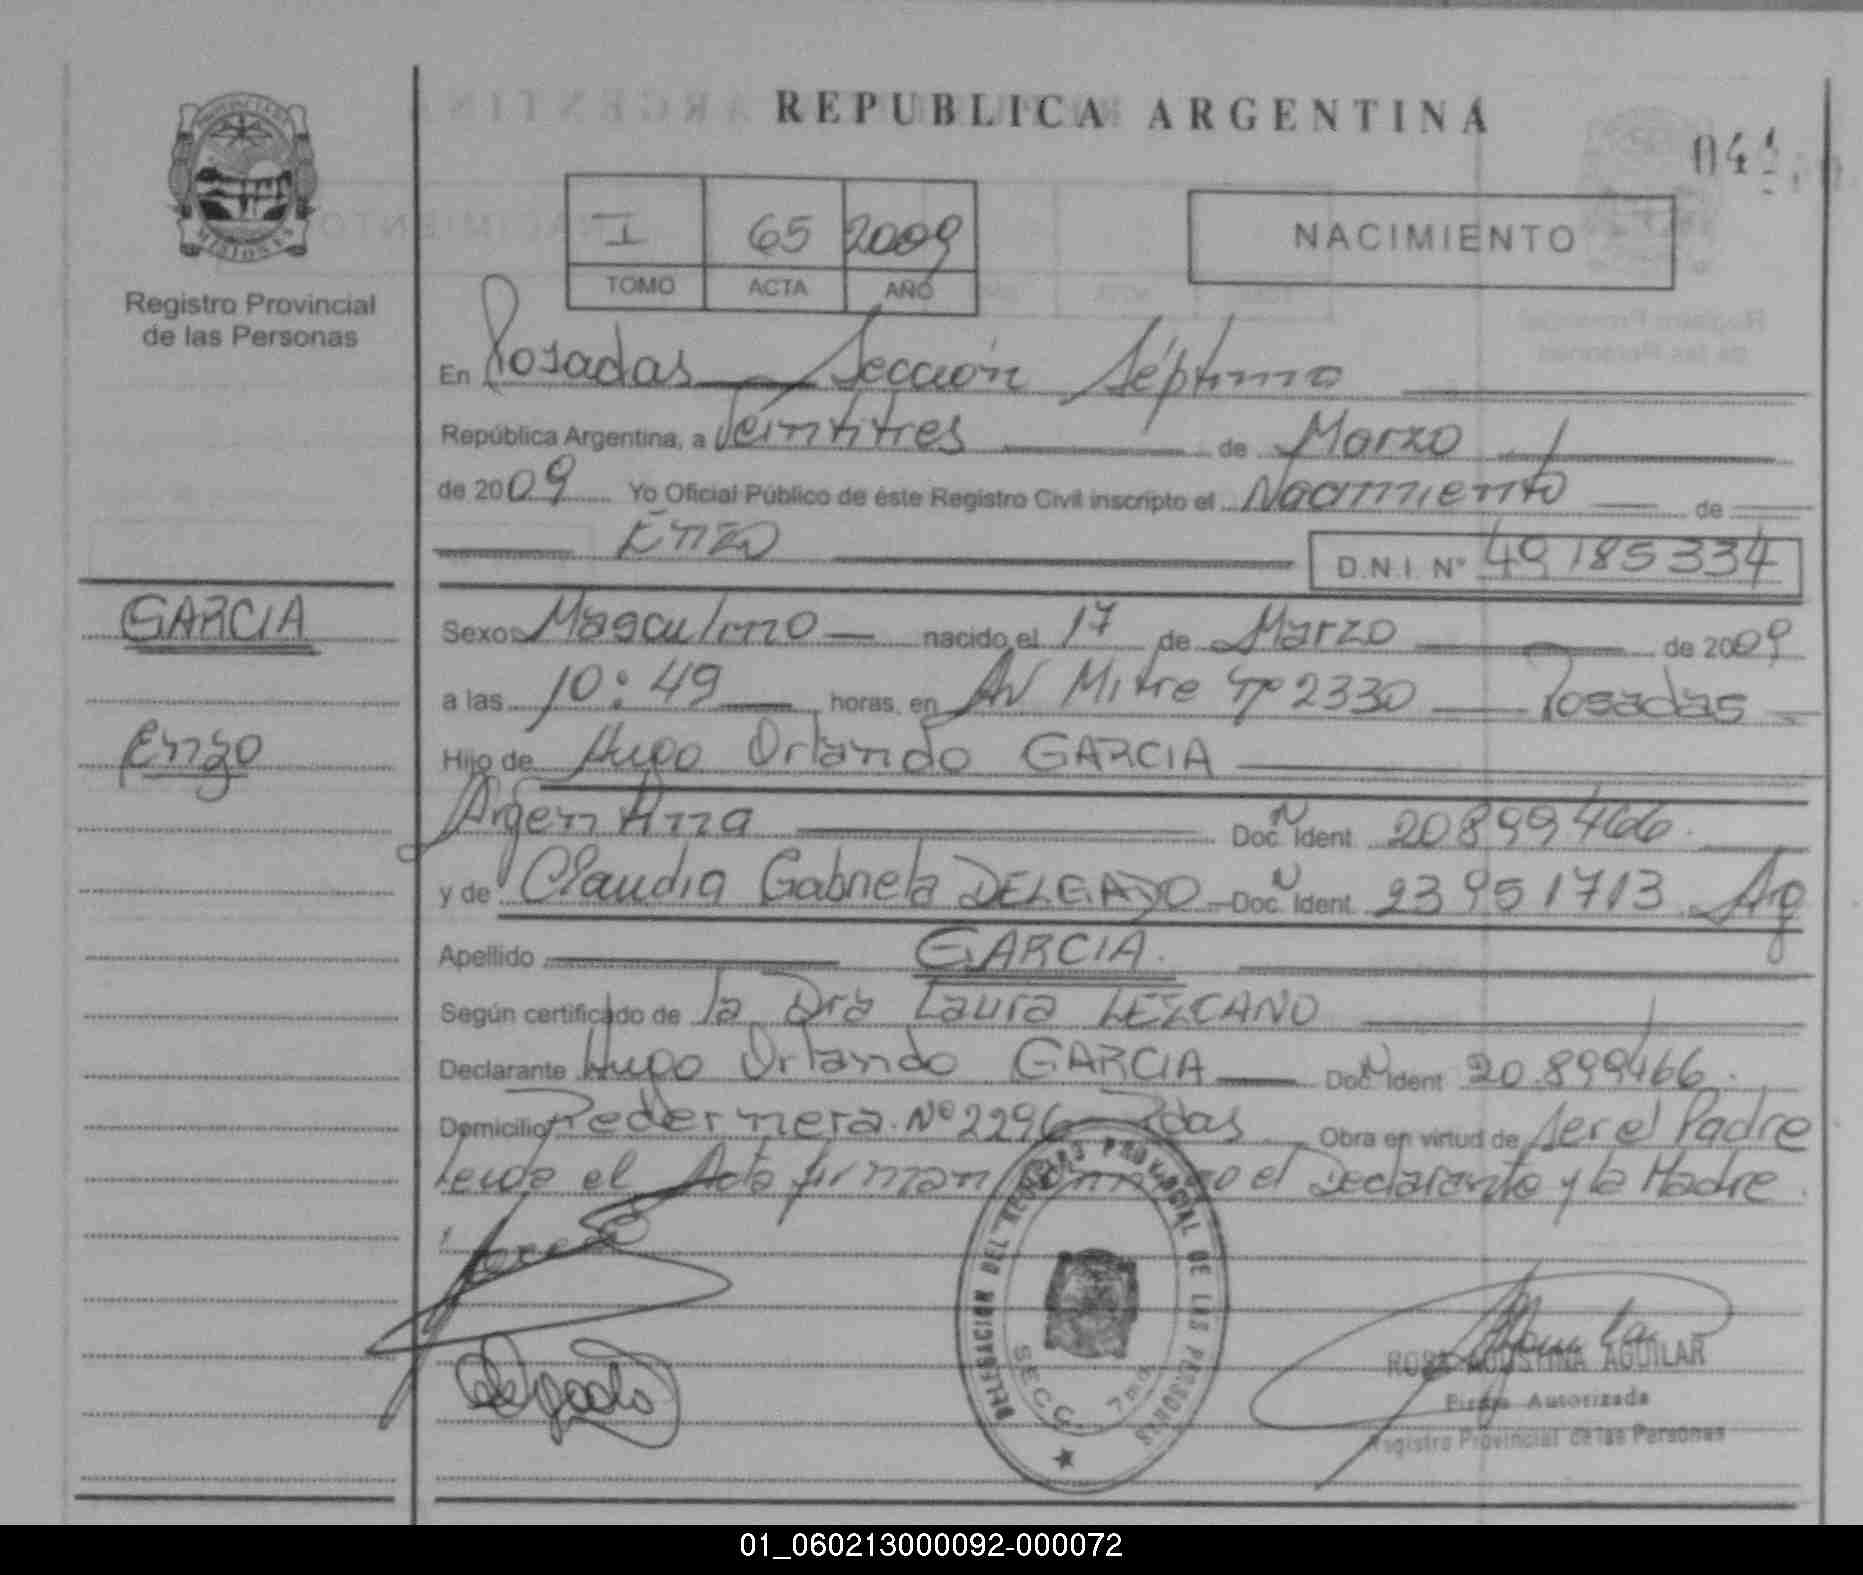 REPUBLICA ARGENTINA
041
MISIONES
Registro Provincial
de las Personas
I 65 2009
TOMO ACTA AÑO
NACIMIENTO
En Posadas Sección Séptima
República Argentina, a Veintitres de Marzo
de 2009 Yo Oficial Público de éste Registro Civil inscripto el Nacimiento de
Enzo D.N.I. Nº 49185334
GARCIA
Enzo
Sexo Masculino nacido el 17 de Marzo de 2009
a las 10:49 horas, en Av Mitre Nº 2330 Posadas
Hijo de Hugo Orlando GARCIA
Argentina Doc. N Ident. 20899466
y de Claudia Gabriela DELGADO Doc. N Ident. 23951713 Arg
Apellido GARCIA.
Según certificado de la Dra Laura LEZCANO
Declarante Hugo Orlando GARCIA Doc. N Ident 20.899466.
Domicilio Pedernera Nº 2296 Pdas Obra en virtud de ser el Padre
Leida el Acta firman conmigo el Declarante y la Madre.
Delgado
DELEGACION DEL REGISTRO PROVINCIAL DE LAS PERSONAS
SECC. 7ma.
ROSA AGUSTINA AGUILAR
Firma Autorizada
Registro Provincial de las Personas
01_060213000092-000072